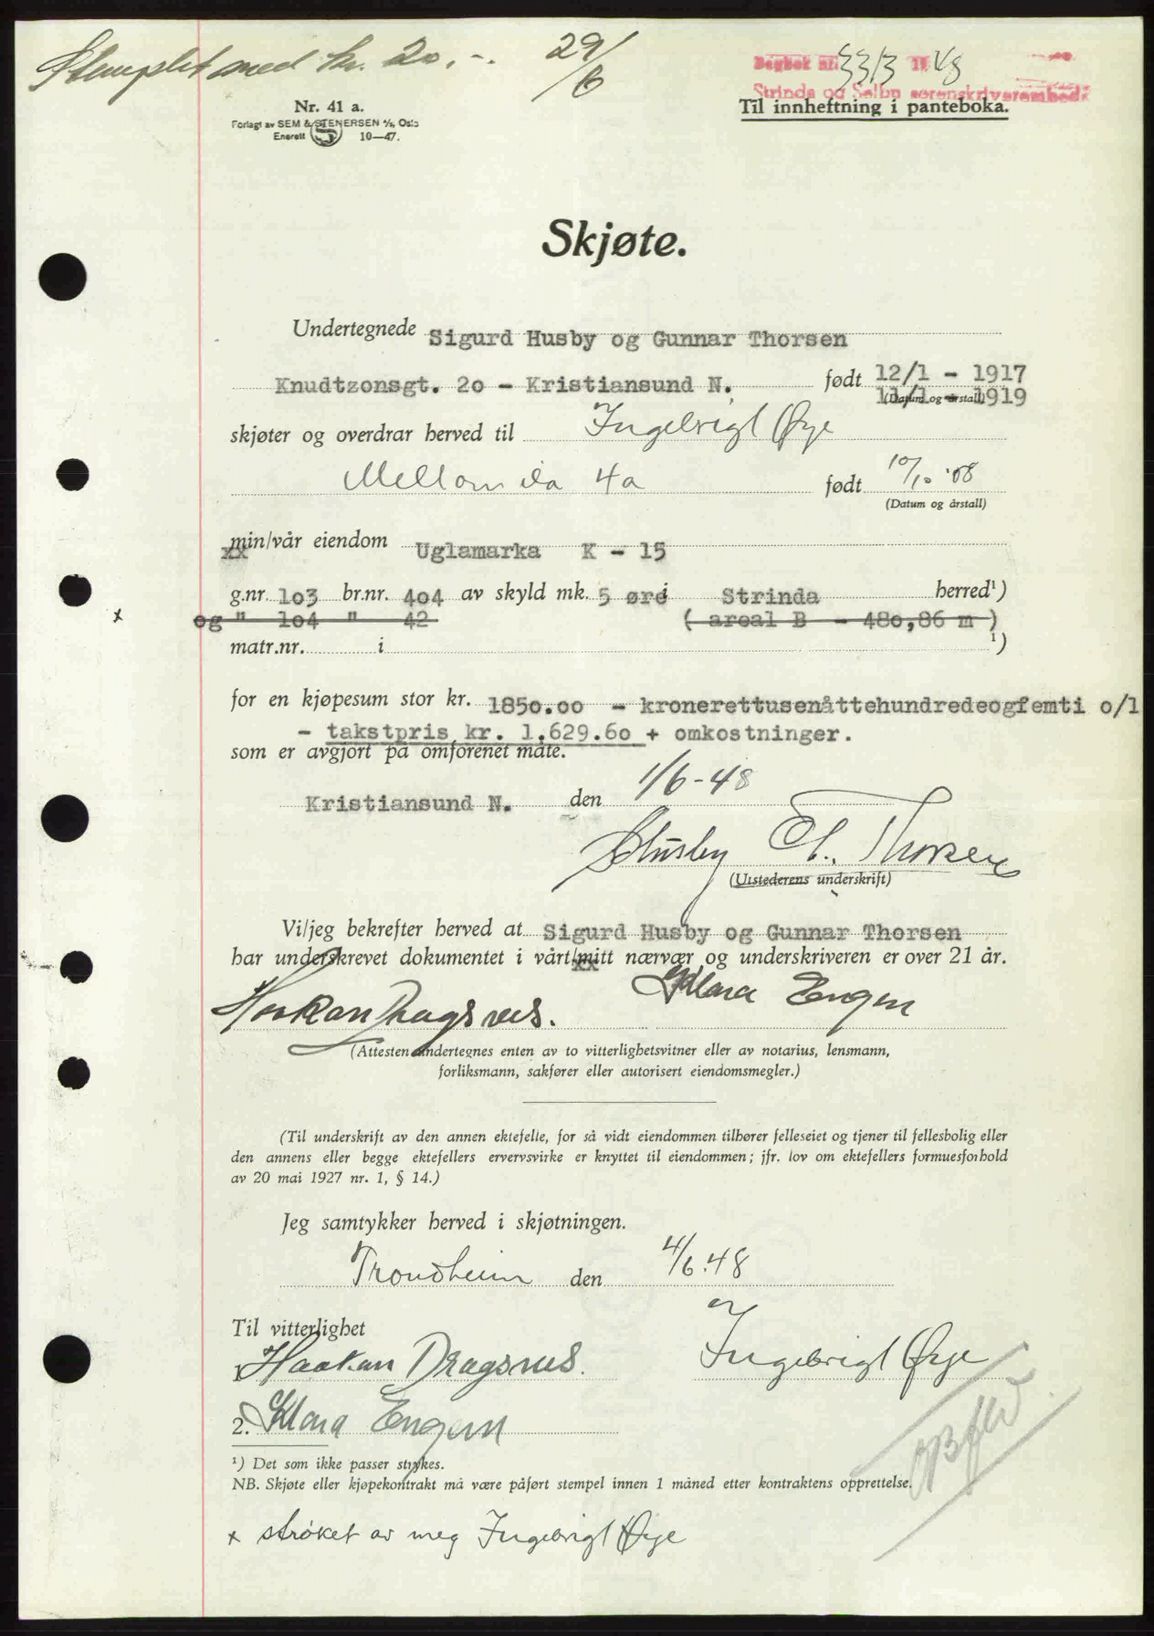 Stemplet med kr. 20,-. 29/6
Dagbok nr. 3313 19 48
Strinda og Selbu sorenskriverembede
Til innheftning i panteboka.
Nr. 41 a.
Forlagt av SEM & STENERSEN A/S, Oslo
Enerett S 10—47.
Skjøte.
Undertegnede Sigurd Husby og Gunnar Thorsen
Knudtzonsgt. 20 - Kristiansund N. født 12/1 - 1917
11/1 - 1919
(Datum og årstall)
skjøter og overdrar herved til Ingebrigt Øye
Mellomila 4a født 10/10 '08
(Datum og årstall)
min/vår eiendom Uglamarka K - 15
xx
g.nr. 103 br.nr. 404 av skyld mk. 5 øre i Strinda herred¹)
x og " 104 " 42 ( areal B - 480,86 m )
matr.nr. i ¹)
for en kjøpesum stor kr. 1850.00 - kronerettusenåttehundredeogfemti o/1
- takstpris kr. 1.629.60 + omkostninger.
som er avgjort på omforenet måte.
Kristiansund N. den 1/6-48
SHusby G. Thorsen
(Utstederens underskrift)
Vi/jeg bekrefter herved at Sigurd Husby og Gunnar Thorsen
har underskrevet dokumentet i vårt/mitt nærvær og underskriveren er over 21 år.
xx
Haakan Dragsnes. Klara Engen
(Attesten undertegnes enten av to vitterlighetsvitner eller av notarius, lensmann,
forliksmann, sakfører eller autorisert eiendomsmegler.)
(Til underskrift av den annen ektefelle, for så vidt eiendommen tilhører felleseiet og tjener til fellesbolig eller
den annens eller begge ektefellers ervervsvirke er knyttet til eiendommen; jfr. lov om ektefellers formuesforhold
av 20 mai 1927 nr. 1, § 14.)
Jeg samtykker herved i skjøtningen.
Trondheim den 4/6.48
Til vitterlighet
Haakan Dragsnes. Ingebrigt Øye
2. Klara Engen
¹) Det som ikke passer strykes.
NB. Skjøte eller kjøpekontrakt må være påført stempel innen 1 måned etter kontraktens opprettelse.
x strøket av meg Ingebrigt Øye